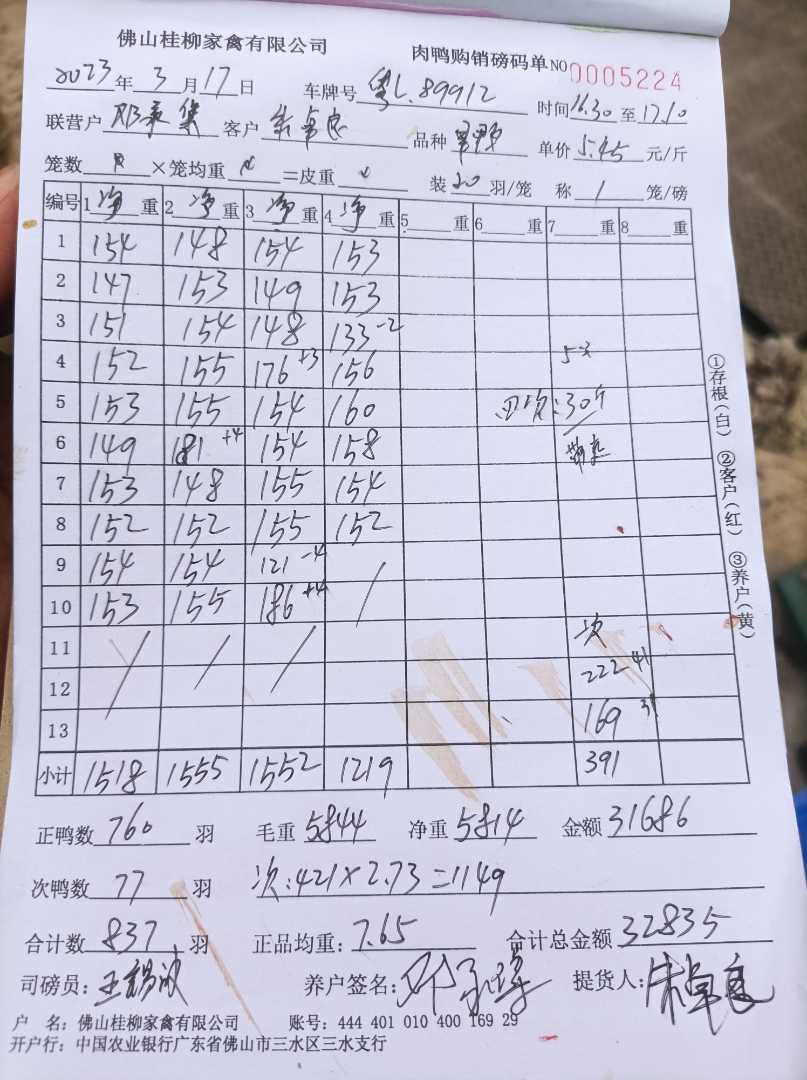 佛山桂柳家禽有限公司 肉鸭购销磅码单 NO 0005224
2023年3月17日 车牌号 粤L.89912 时间16.30至17.10
联营户 客户 朱卓良 品种 单价5.45元/斤
笼数 ×笼均重 =皮重 装20羽/笼 称1笼/磅
编号 1净重 2净重 3净重 4净重 5重 6重 7重 8重
1 154 148 154 153
2 147 153 149 153
3 151 154 148 133-2
4 152 155 176+3 156
5 153 155 154 160 :30斤
6 149 181+4 154 158
7 153 148 155 154
8 152 152 155 152
9 154 154 121-4 /
10 153 155 186+4
11 / / / 次
12 222 41
13 169
小计 1518 1555 1552 1219 391
正鸭数760羽 毛重5844 净重5814 金额31686
次鸭数77羽 次:421×2.73=1149
合计数837羽 正品均重:7.65 合计总金额32835
司磅员: 养户签名: 提货人:朱卓良
户 名:佛山桂柳家禽有限公司 账号:444 401 010 400 169 29
开户行:中国农业银行广东省佛山市三水区三水支行
①存根(白) ②客户(红) ③养户(黄)